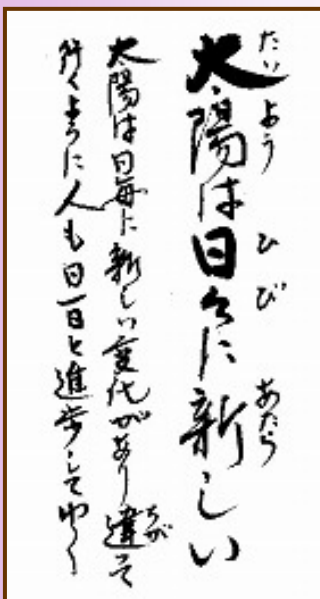 太陽は日々に新しい
たいよう ひび あたら
太陽は日毎に新しい変化があり違って
ちが
行くように人も日一日と進歩してゆく